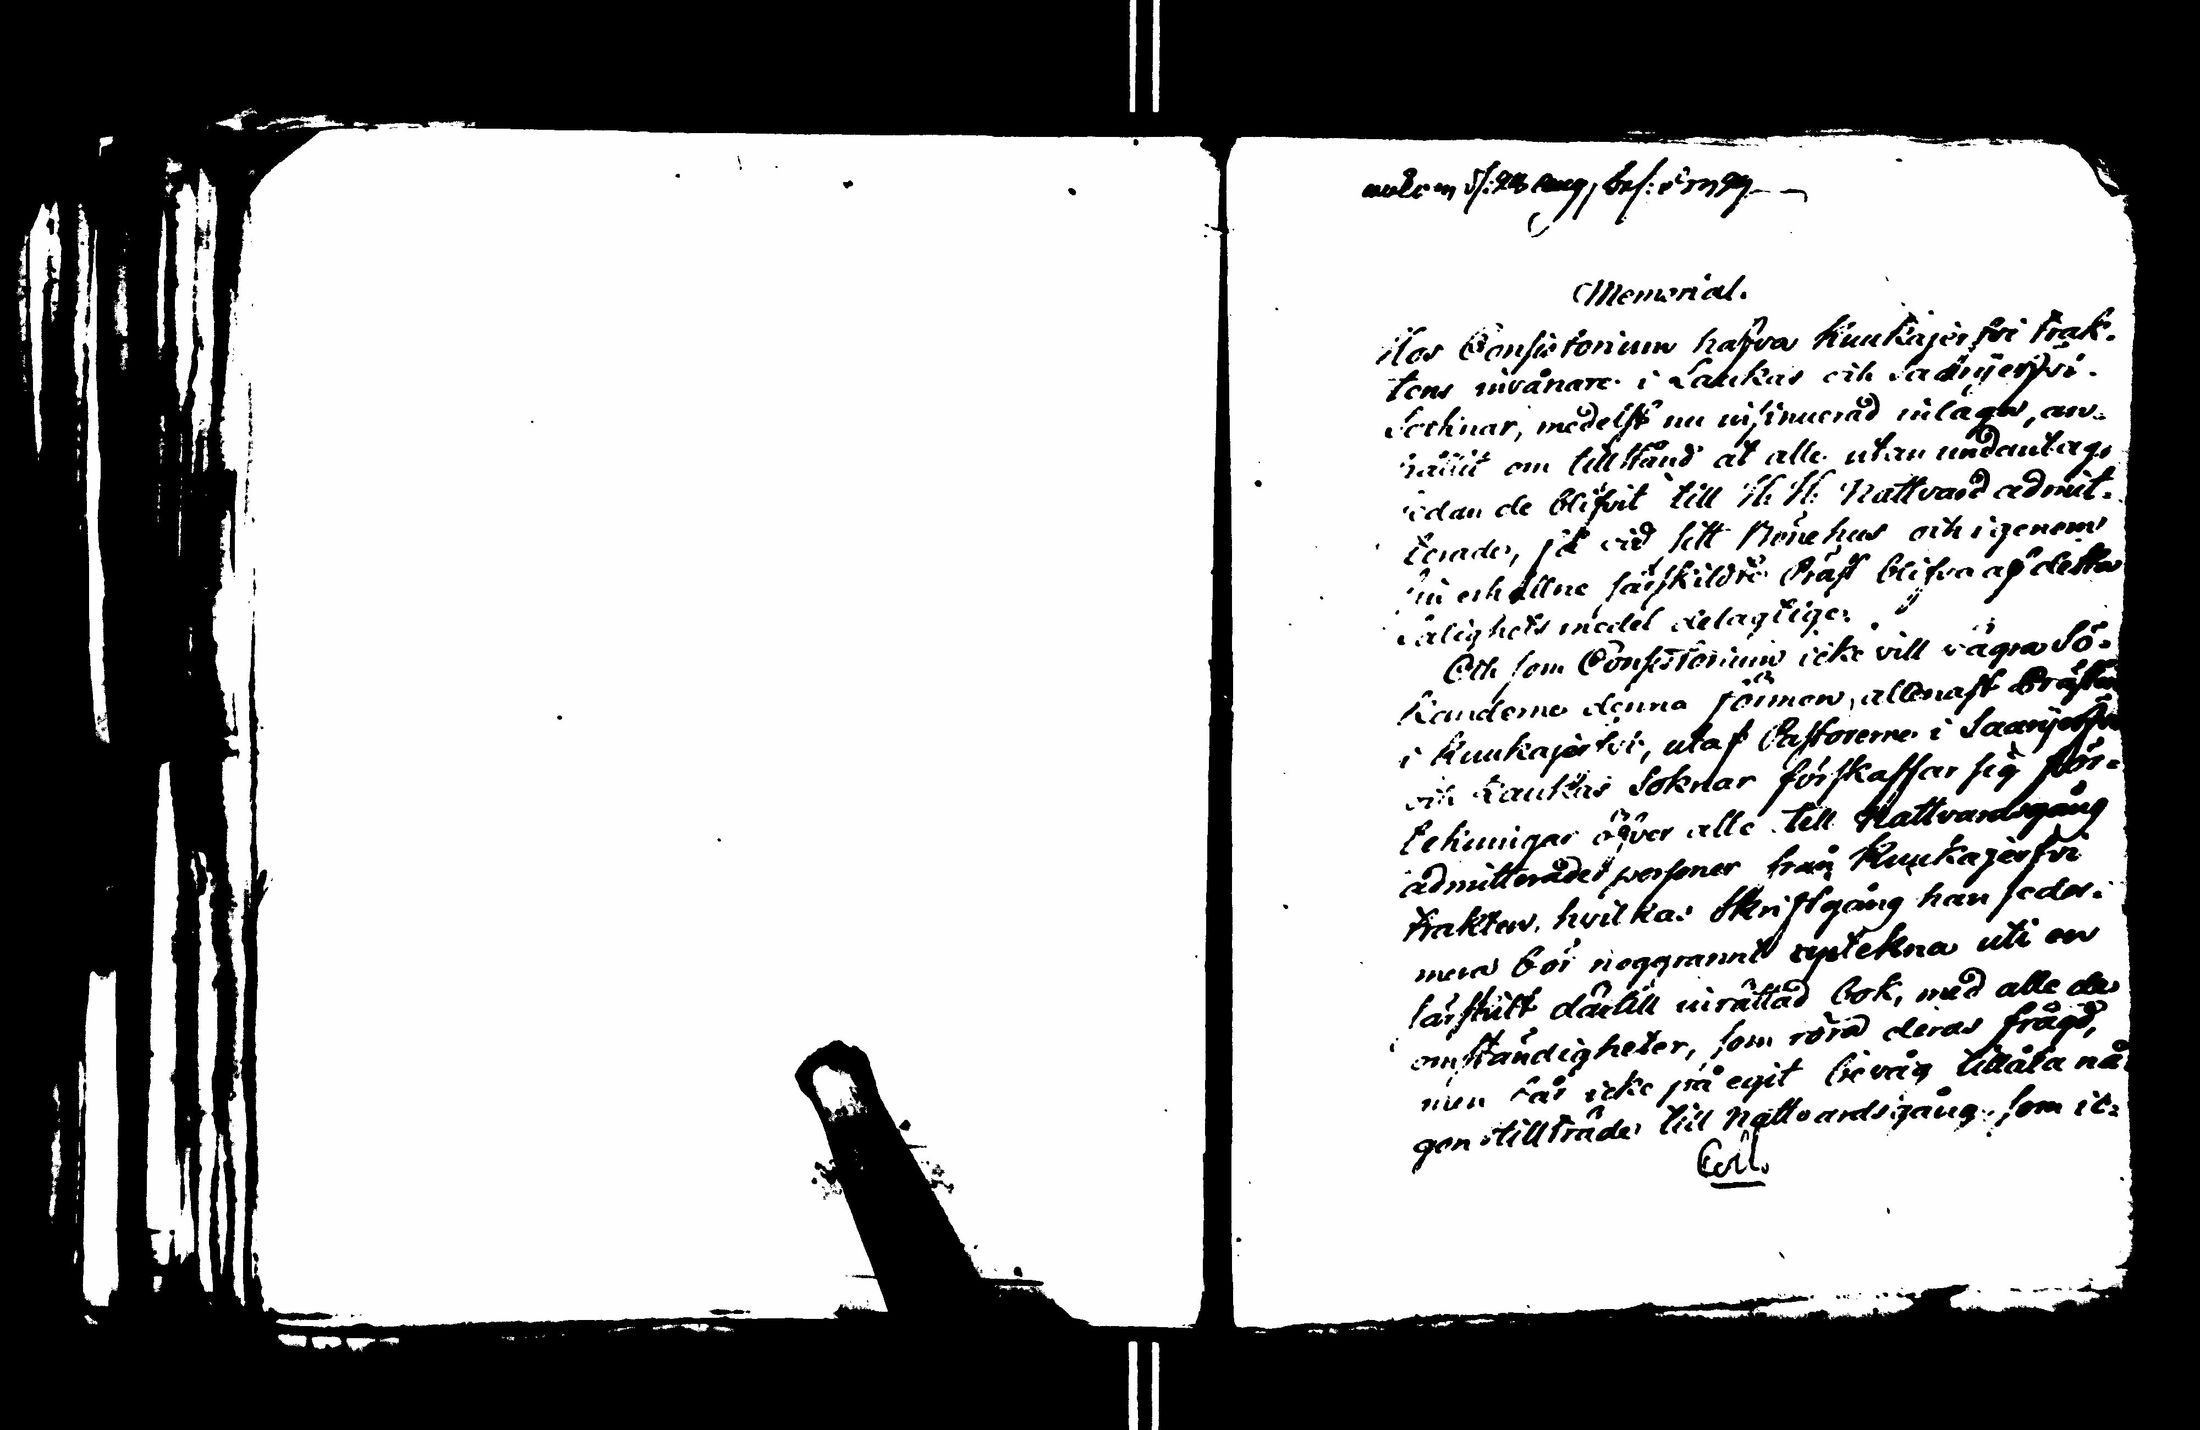 Memorial.
Hos Consistorium hafva Kuukajerfvi trak-
tens invånare i Laukas och Saarijerfvi
Socknar, medelst nu insinuerad inlaga, an-
hållit om tillstånd at alle utan undantag,
sedan de blifvit till H. H. Nattvard admit-
terade, få vid sitt Bönehus och igenom
sin erhållne särskildte Präst blifva af detta
salighets medel delagtige.
Och som Consistorium icke vill vägra Sö-
kanderne denna förmon, allenast Prästen
i Kuukajerfvi, utaf Pastorerne i Saarijerfvi
och Laukas Soknar förskaffar sig för-
tekningar öfver alle till Nattvardsgång
admitterade personer från Kuukajerfvi
trakten, hvilkas Skriftgång han seder-
mera bör noggrannt uptekna uti en
särskilt därtill inrättad bok, med alle de
omständigheter, som röra deras frågd,
men får icke på egit bevåg tillåta nå-
gon tillträde till Nattvardsgång, som ic-